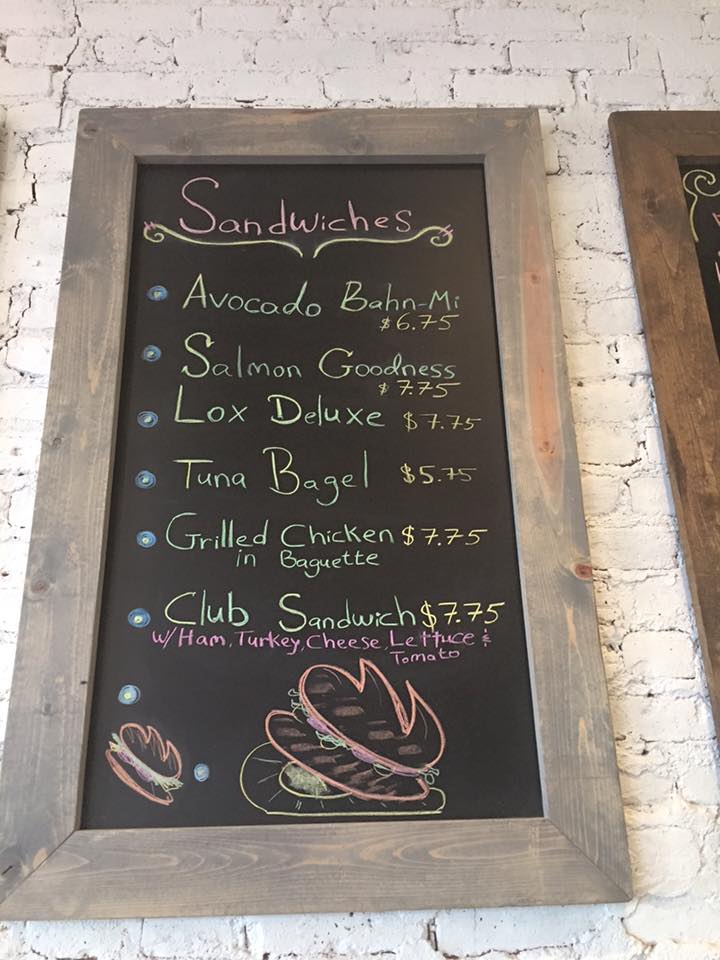 Sandwiches
Avocado Bahn-Mi
$6.75
Salmon Goodness
$7.75
Lox Deluxe $7.75
Tuna Bagel $5.75
Grilled Chicken $7.75
in Baguette
Club Sandwich $7.75
w/ Ham, Turkey, Cheese, Lettuce &
Tomato